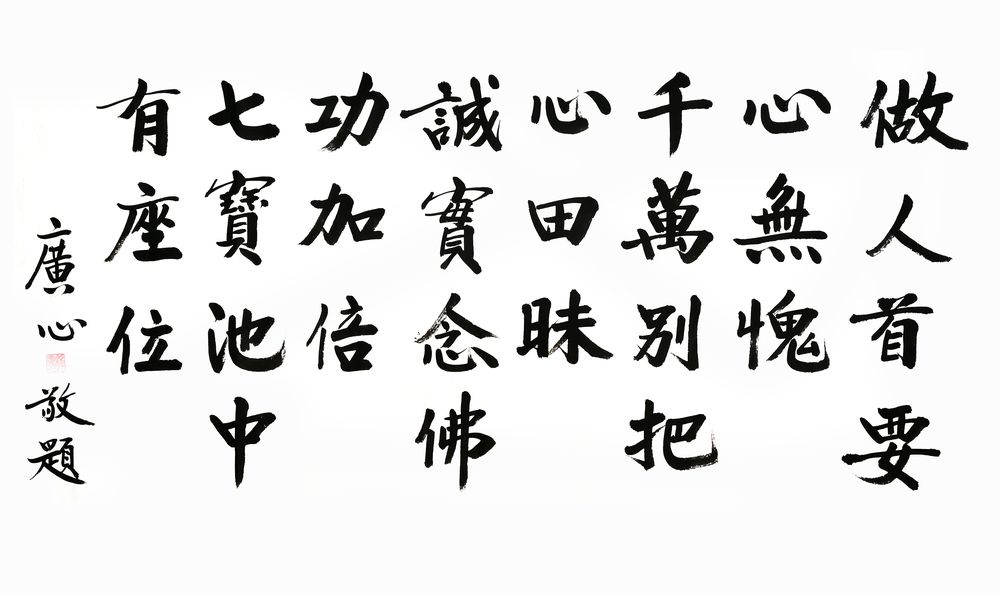 做人首要
心無愧
千萬别把
心田昧
誠實念佛
功加倍
七寶池中
有座位
廣心敬題